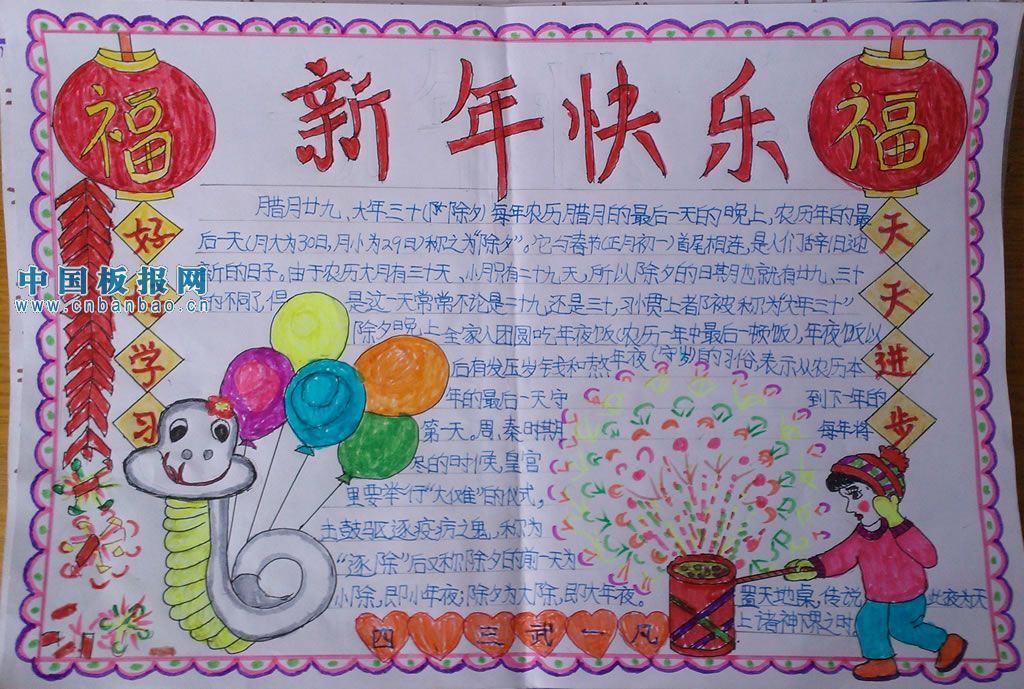 新年快乐
福
福
好
学
习
天
天
进
步
中国板报网
www.cnbanbao.cn
腊月廿九、大年三十(除夕)每年农历腊月的最后一天的晚上,农历年的最
后一天(月大为30日,月小为29日)称之为“除夕”。它与春节(正月初一)首尾相连,是人们辞旧迎
新的日子。由于农历大月有三十天、小月只有二十九天,所以除夕的日期也就有廿九、三十
的不同,但 是这一天常常不论是二十九还是三十,习惯上都被称为“大年三十”
除夕晚上全家人团圆吃年夜饭(农历一年中最后一顿饭),年夜饭以
后有发压岁钱和熬年夜(守岁)的习俗,表示从农历本
年的最后一天守 到下一年的
第一天。周、秦时期 每年将
的时候,皇宫
里要举行“大傩”的仪式,
击鼓驱逐疫疠之鬼,称为
“逐除”后又称除夕的前一天为
小除,即小年夜;除夕为大除,即大年夜。 置天地桌,传说 此夜为天
上诸神 之时
四 三 武 一 凡